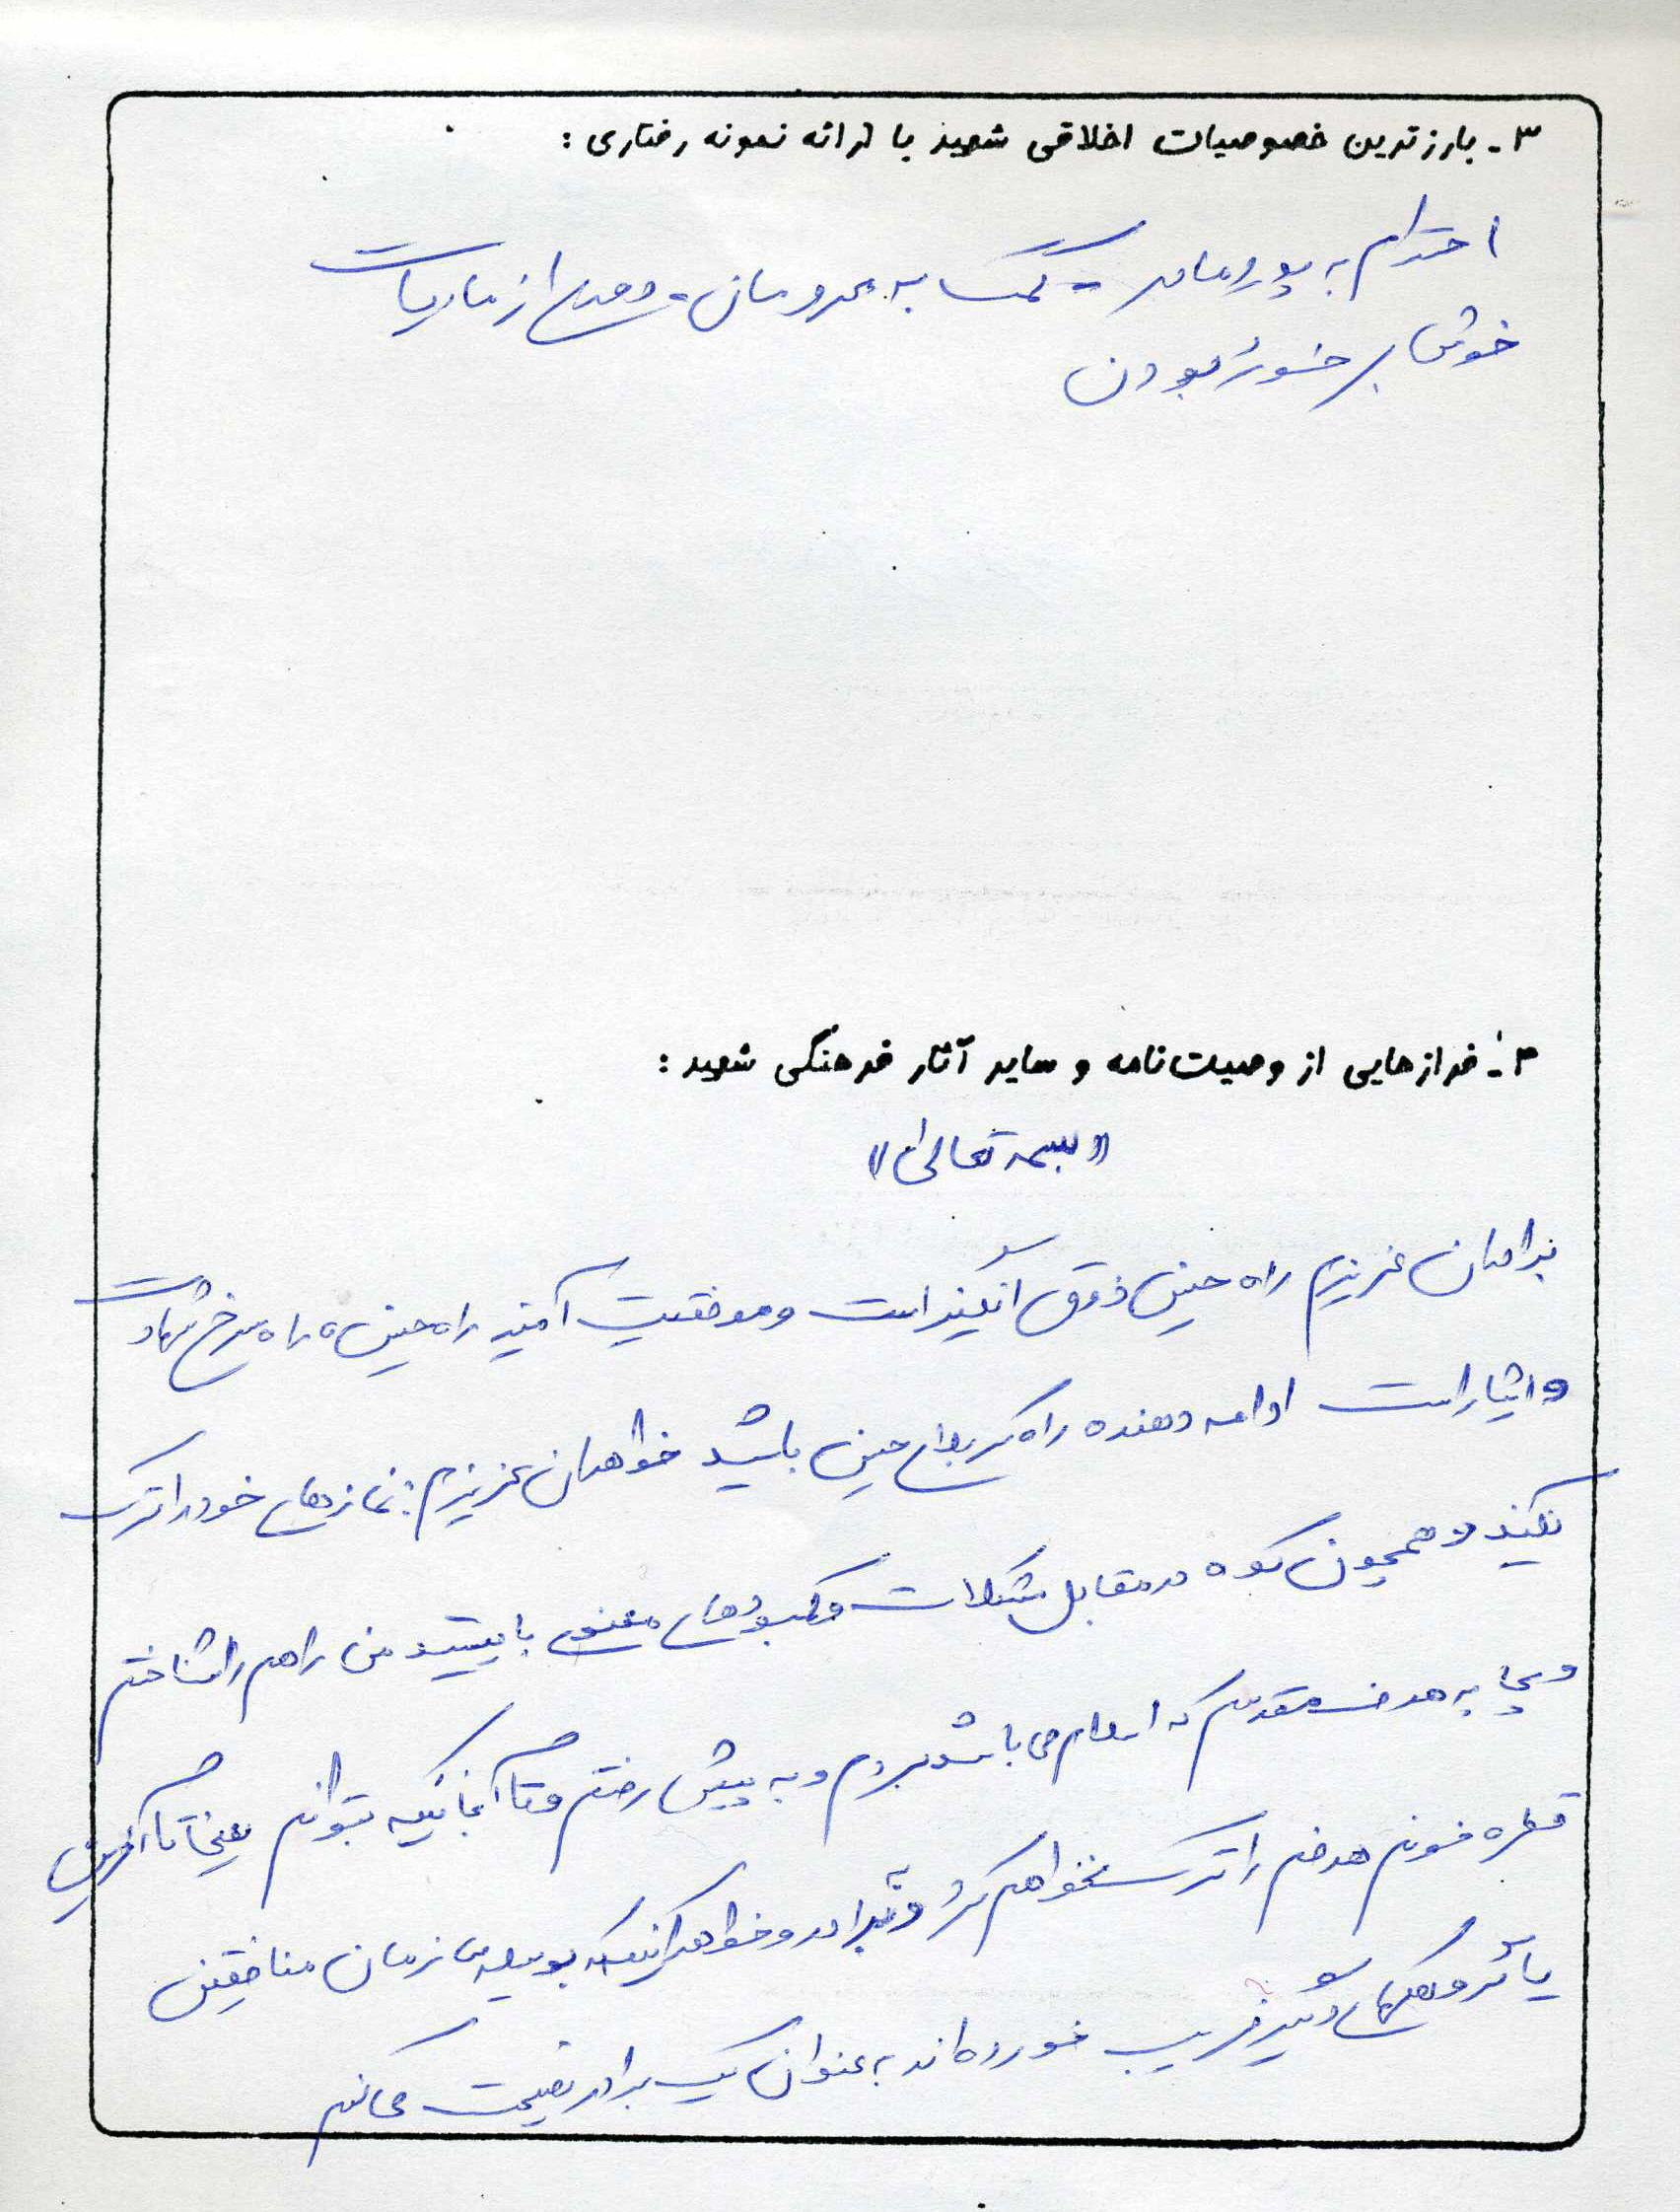 ۳- بارزترین خصوصیات اخلاقی شهید با ارائه نمونه رفتاری :
احترام به پدر و مادر - کمک به محرومان - دوری از مادیات
خوش برخورد بودن
۴- فرازهایی از وصیت‌نامه و سایر آثار فرهنگی شهید :
«بسمه تعالی»
برادران عزیزم راه حسین ذوق انگیز است و موفقیت آمیز راه حسین راه سرخ شهادت
و ایثار است ادامه دهنده راه کربلای حسین باشید خواهران عزیزم: نمازهای خود را ترک
نکنید و همچون کوه در مقابل مشکلات و کمبودهای معنوی بایستید من راهم را شناختم
و به هدف مقدسم که اسلام می باشد بردم و به پیش رفتم و تا آنجائیکه بتوانم یعنی تا آخرین
قطره خونم هدفم را ترک نخواهم کرد و برادر و خواهرانیکه بوسیله سازمان منافقین
یا گروهکهای دیگر فریب خورده اند به عنوان یک برادر نصیحت می کنم